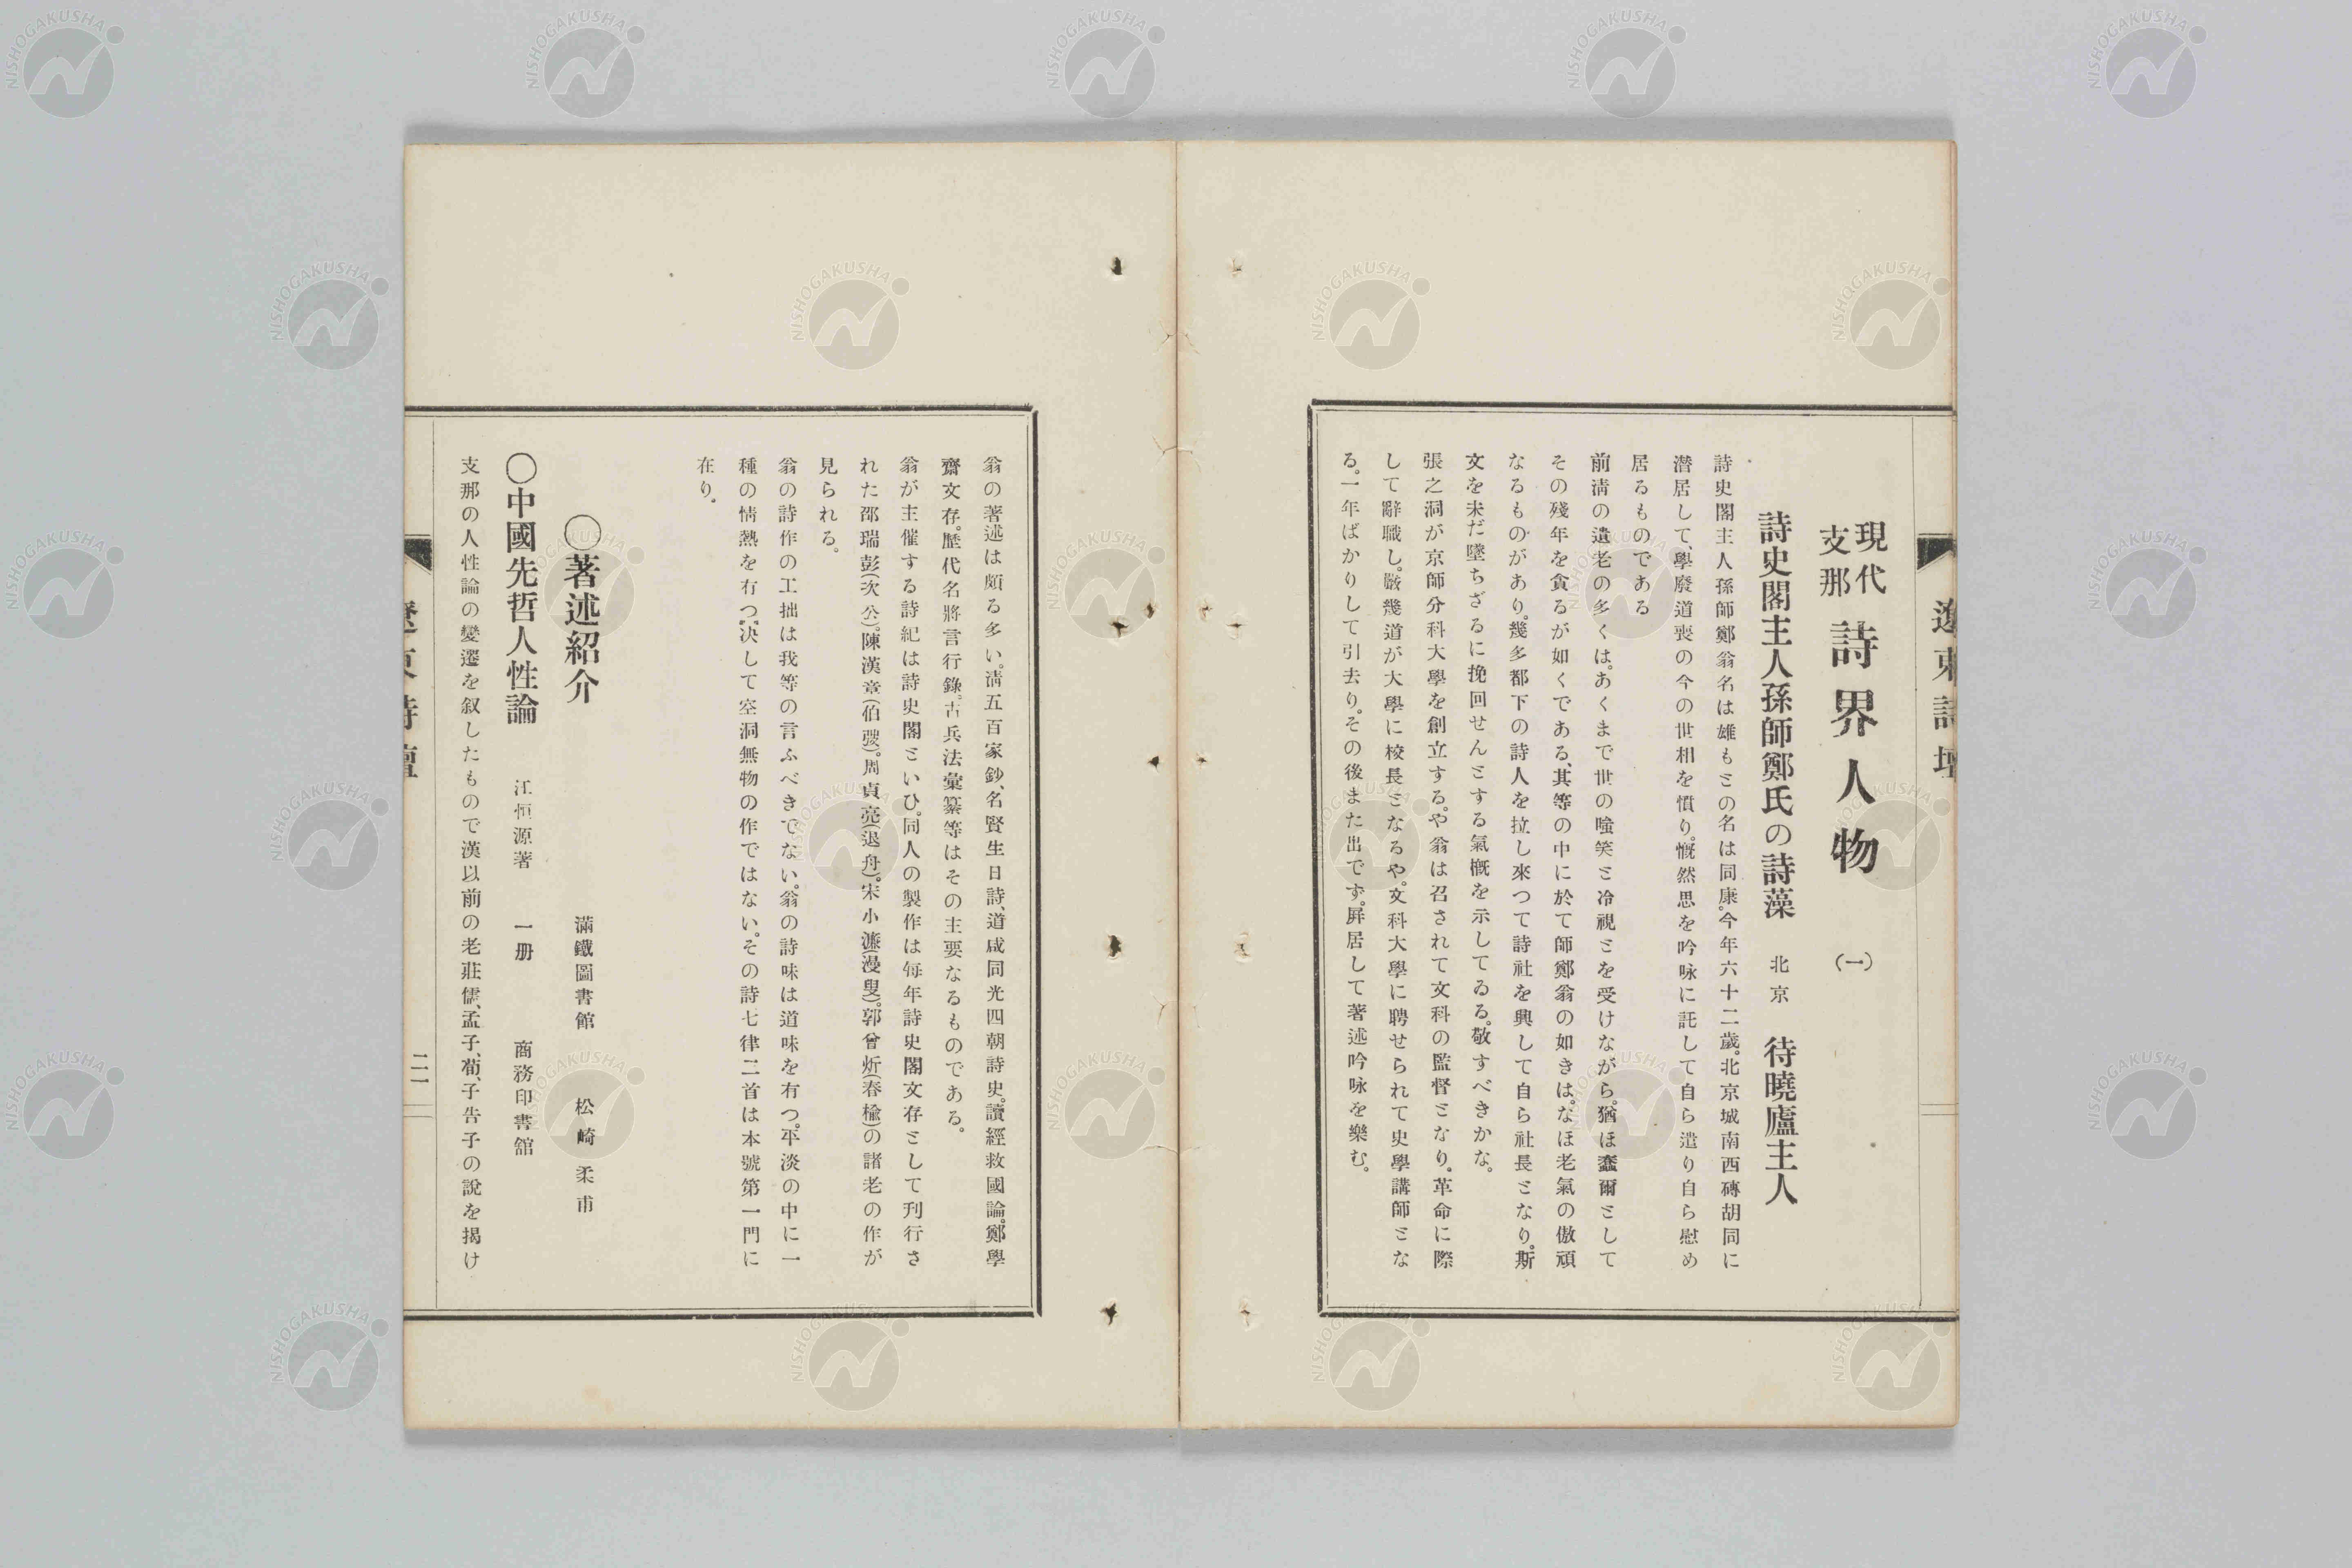 遼東詩壇
現代
支那
詩界人物 (一)
詩史閣主人孫師鄭氏の詩藻 北京 待曉廬主人
詩史閣主人孫師鄭翁名は雄もとの名は同康。今年六十二歲。北京城南西磚胡同に
潛居して、學廢道喪の今の世相を憤り。慨然思を吟咏に託して自ら遣り自ら慰め
居るものである
前淸の遺老の多くは。あくまで世の嗤笑と冷視とを受けながら。猶ほ蠢爾として
その殘年を貪るが如くである、其等の中に於て師鄭翁の如きは。なほ老氣の傲頑
なるものがあり。幾多都下の詩人を拉し來つて詩社を興して自ら社長となり。斯
文を未だ墜ちざるに挽回せんとする氣概を示してゐる。敬すべきかな。
張之洞が京師分科大學を創立する。や翁は召されて文科の監督となり。革命に際
して辭職し。嚴幾道が大學に校長となるや。文科大學に聘せられて史學講師とな
る。一年ばかりして引去り。その後また出です。屛居して著述吟咏を樂む。
翁の著述は頗る多い。淸五百家鈔、名賢生日詩、道咸同光四朝詩史。讀經救國論。鄭學
齋文存。歷代名將言行錄。古兵法彙纂等はその主要なるものである。
翁が主催する詩紀は詩史閣といひ。同人の製作は每年詩史閣文存として刊行さ
れた邵瑞彭(次公)。陳漢章(伯弢)。周貞亮(退舟)。宋小濂(漫叟)。郭曾炘(春楡)の諸老の作が
見られる。
翁の詩作の工拙は我等の言ふべきでない。翁の詩味は道味を有つ。平淡の中に一
種の情熱を有つ。決して空洞無物の作ではない。その詩七律二首は本號第一門に
在り。
〇著述紹介 滿鐵圖書館 松崎柔甫
〇中國先哲人性論 江恒源著 一册 商務印書館
支那の人性論の變遷を叙したもので漢以前の老莊儒、孟子、荀、子告子の說を揭け
遼東詩壇 二一
NISHOGAKUSHA